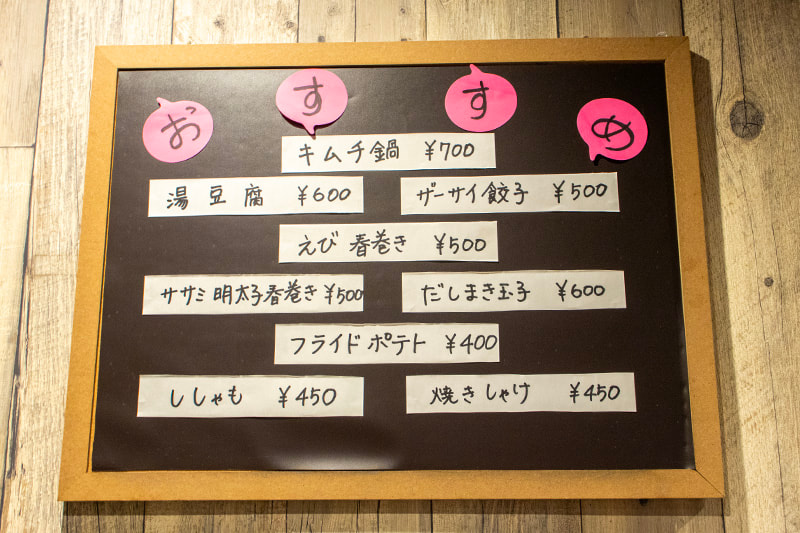 おすすめ
キムチ鍋 ¥700
湯豆腐 ¥600
ザーサイ餃子 ¥500
えび春巻き ¥500
ササミ明太子春巻き ¥500
だしまき玉子 ¥600
フライドポテト ¥400
ししゃも ¥450
焼きしゃけ ¥450